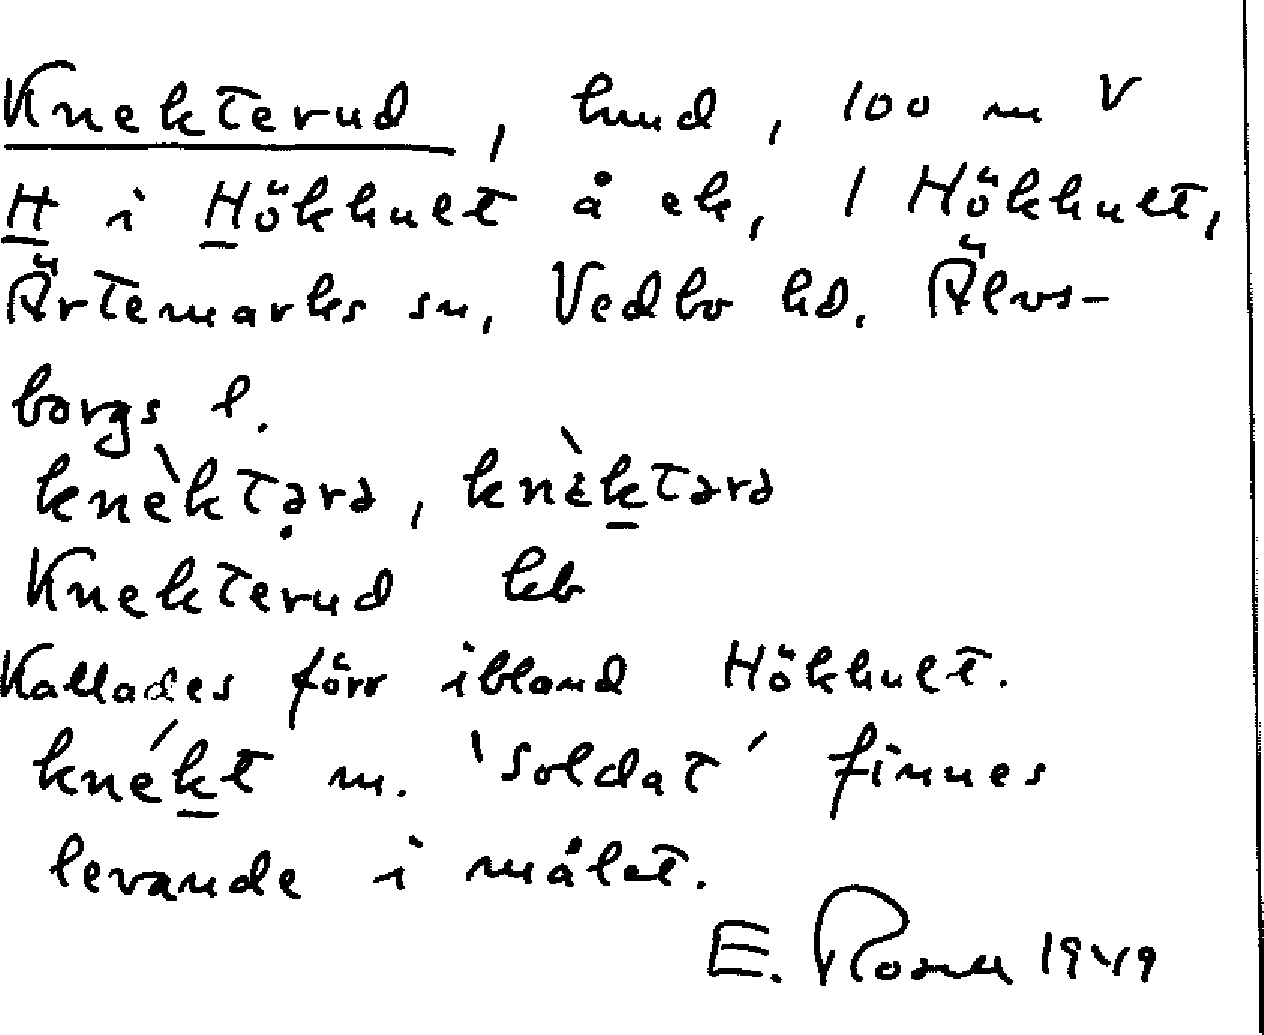 Knekterud, hmd, 100 m V
H i Hökhult å ek, 1 Hökhult,
Ärtemarks sn, Vedbo hd. Älvs-
borgs l.
knèktə̣rə, knèktərə
Knekterud hb
Kallades förr ibland Hökhult.
knékt m. 'soldat' finnes
levande i målet.
E. 1949